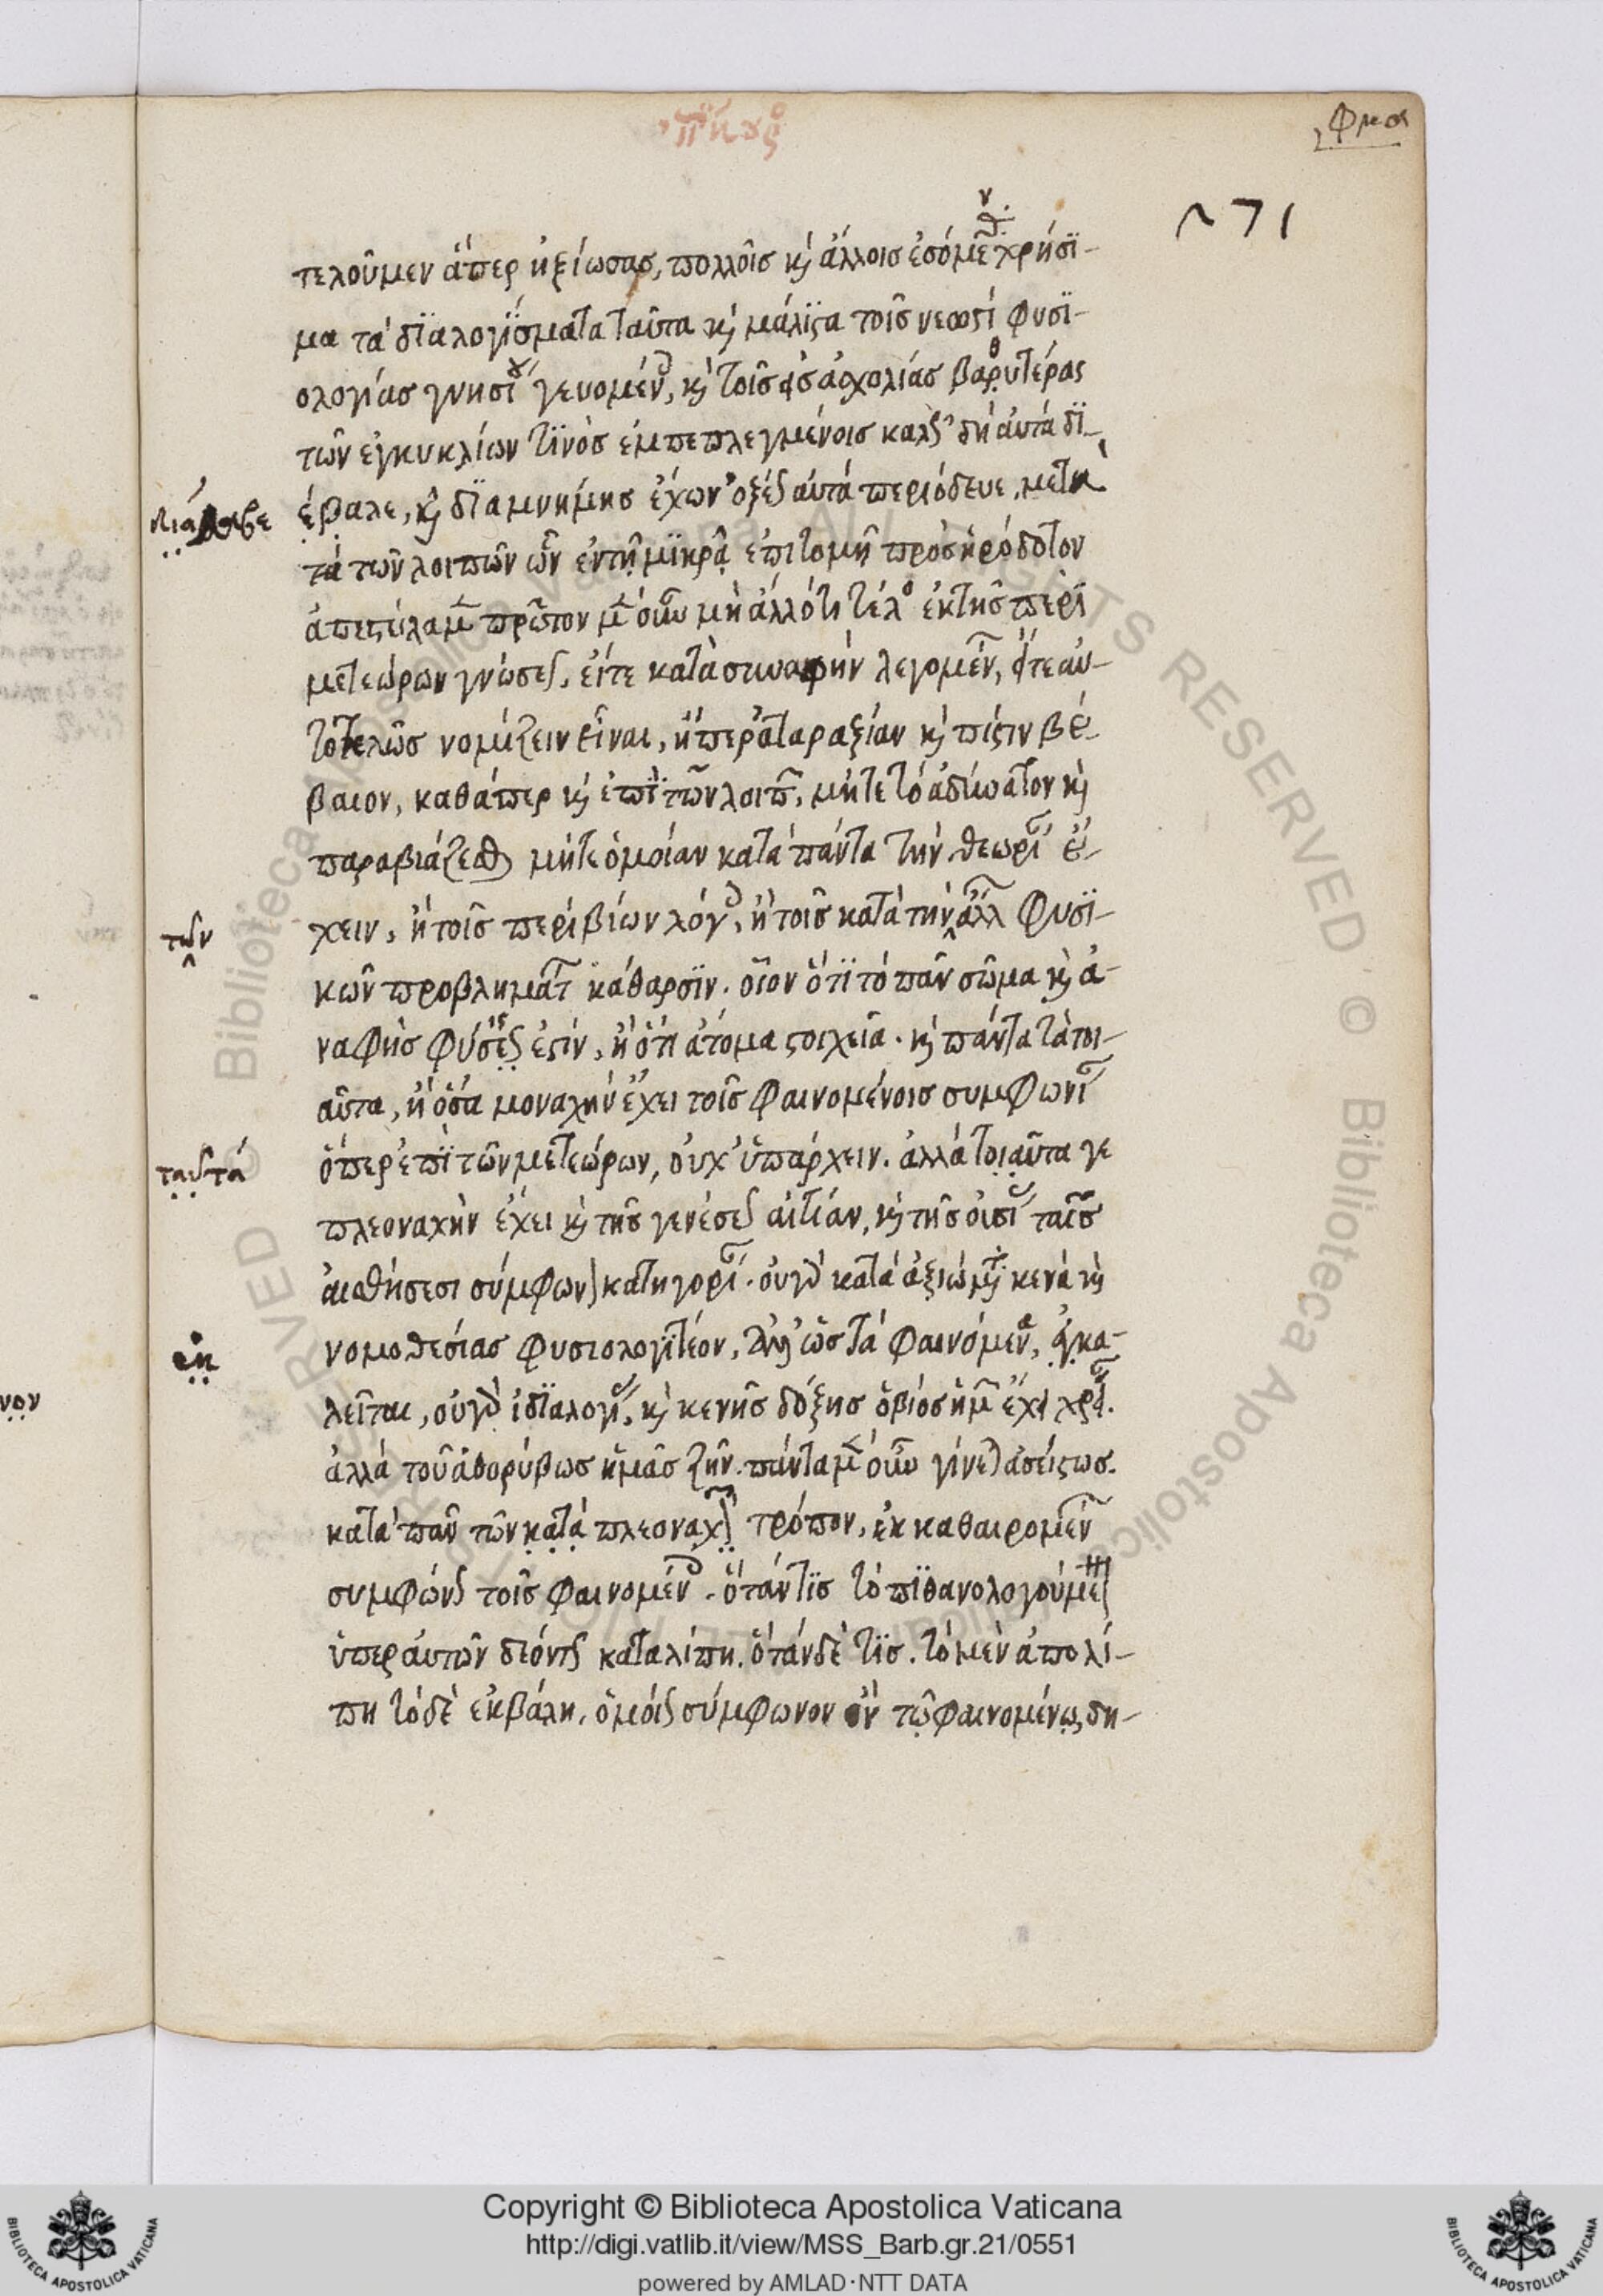 ἐπίκουρος
φμα
271
τελοῦμεν ἅπερ ἠξίωσας, πολλοῖς καὶ ἄλλοις ἐσόμενα χρήσϊ-
μα τὰ δϊαλογΐσματα ταῦτα καὶ μάλϊστα τοῖς νεωστὶ φυσϊ-
ολογίας γνησίου γευομένοις, καὶ τοῖς εἰς ἀσχολίας βαθυτέρας
τῶν ἐγκυκλίων τϊνὸς ἐμπεπλεγμένοις καλῶς δὴ αὐτὰ δϊ-
διάλαβε
έβαλε, καὶ δϊὰ μνήμης ἔχων ὀξέως αὐτὰ περιόδευε, μετὰ
τὰ τῶν λοιπῶν ὧν ἐν τῇ μϊκρᾷ ἐπιτομῇ πρὸς ἡρόδοτον
ἀπεστείλαμεν πρῶτον μὲν οὖν μὴ ἄλλό τι τέλος ἐκ τῆς περὶ
μετεώρων γνώσεως, εἴτε κατὰ συναφὴν λεγομένων, εἴτε αὐ-
τοτελῶς νομίζειν εἶναι, ἤπερ ἀταραξίαν καὶ πίστιν βέ-
βαιον, καθάπερ καὶ ἐπϊ τῶν λοιπῶν, μήτε τὸ ἀδύνατον καὶ
παραβιάζεσθαι μήτε ὁμοίαν κατὰ πάντα τὴν θεωρίαν ἔ-
τῶν
χειν, ἢ τοῖς περὶ βίων λόγοις, ἢ τοῖς κατὰ τὴν ἄλλων φυσϊ-
κῶν προβλημάτων κάθαρσϊν. οἷον ὅτϊ τὸ πᾶν σῶμα καὶ ἀ-
ναφὴς φύσις ἐστίν, ἢ ὅτι ἄτομα στοιχεῖα. καὶ πάντα τὰ τοι-
αῦτα, ἢ ὅσα μοναχὴν ἔχει τοῖς φαινομένοις συμφωνίαν
ταῦτά
ὅπερ ἐπϊ τῶν μετεώρων, οὐχ ὑπάρχειν. ἀλλὰ τοιαῦτα γε
πλεοναχὴν ἔχει καὶ τῆς γενέσεως αἰτίαν, καὶ τῆς οὐσίας ταῖς
αἰσθήσεσι σύμφωνον κατηγορίαν. οὐ γὰρ κατὰ ἀξιώματα κενὰ καὶ
νομοθεσίας φυσιολογϊτέον, ἀλλ' ὡς τὰ φαινόμενα, ἐκκα-
λεῖται, οὐ γὰρ ἰδϊαλογίας, καὶ κενῆς δόξης ὁ βίος ἡμῶν ἔχει χρείαν.
ἀλλὰ τοῦ ἀθορύβως ἡμᾶς ζῆν. πάντα μὲν οὖν γίνεται ἀσείστως.
κατὰ πᾶν τῶν κατὰ πλεοναχὸν τρόπον, ἐκκαθαιρομένων
συμφώνως τοῖς φαινομένοις. ὅτάν τϊς τὸ πϊθανολογούμενον
ὑπὲρ αὐτῶν δεόντως καταλίπῃ. ὅτάν δὲ τϊς. τὸ μὲν ἀπολί-
πῃ τὸ δὲ ἐκβάλῃ, ὁμοίως σύμφωνον ὂν τῷ φαινομένῳ, δη-
νον
Copyright © Biblioteca Apostolica Vaticana
http://digi.vatlib.it/view/MSS_Barb.gr.21/0551
powered by AMLAD·NTT DATA